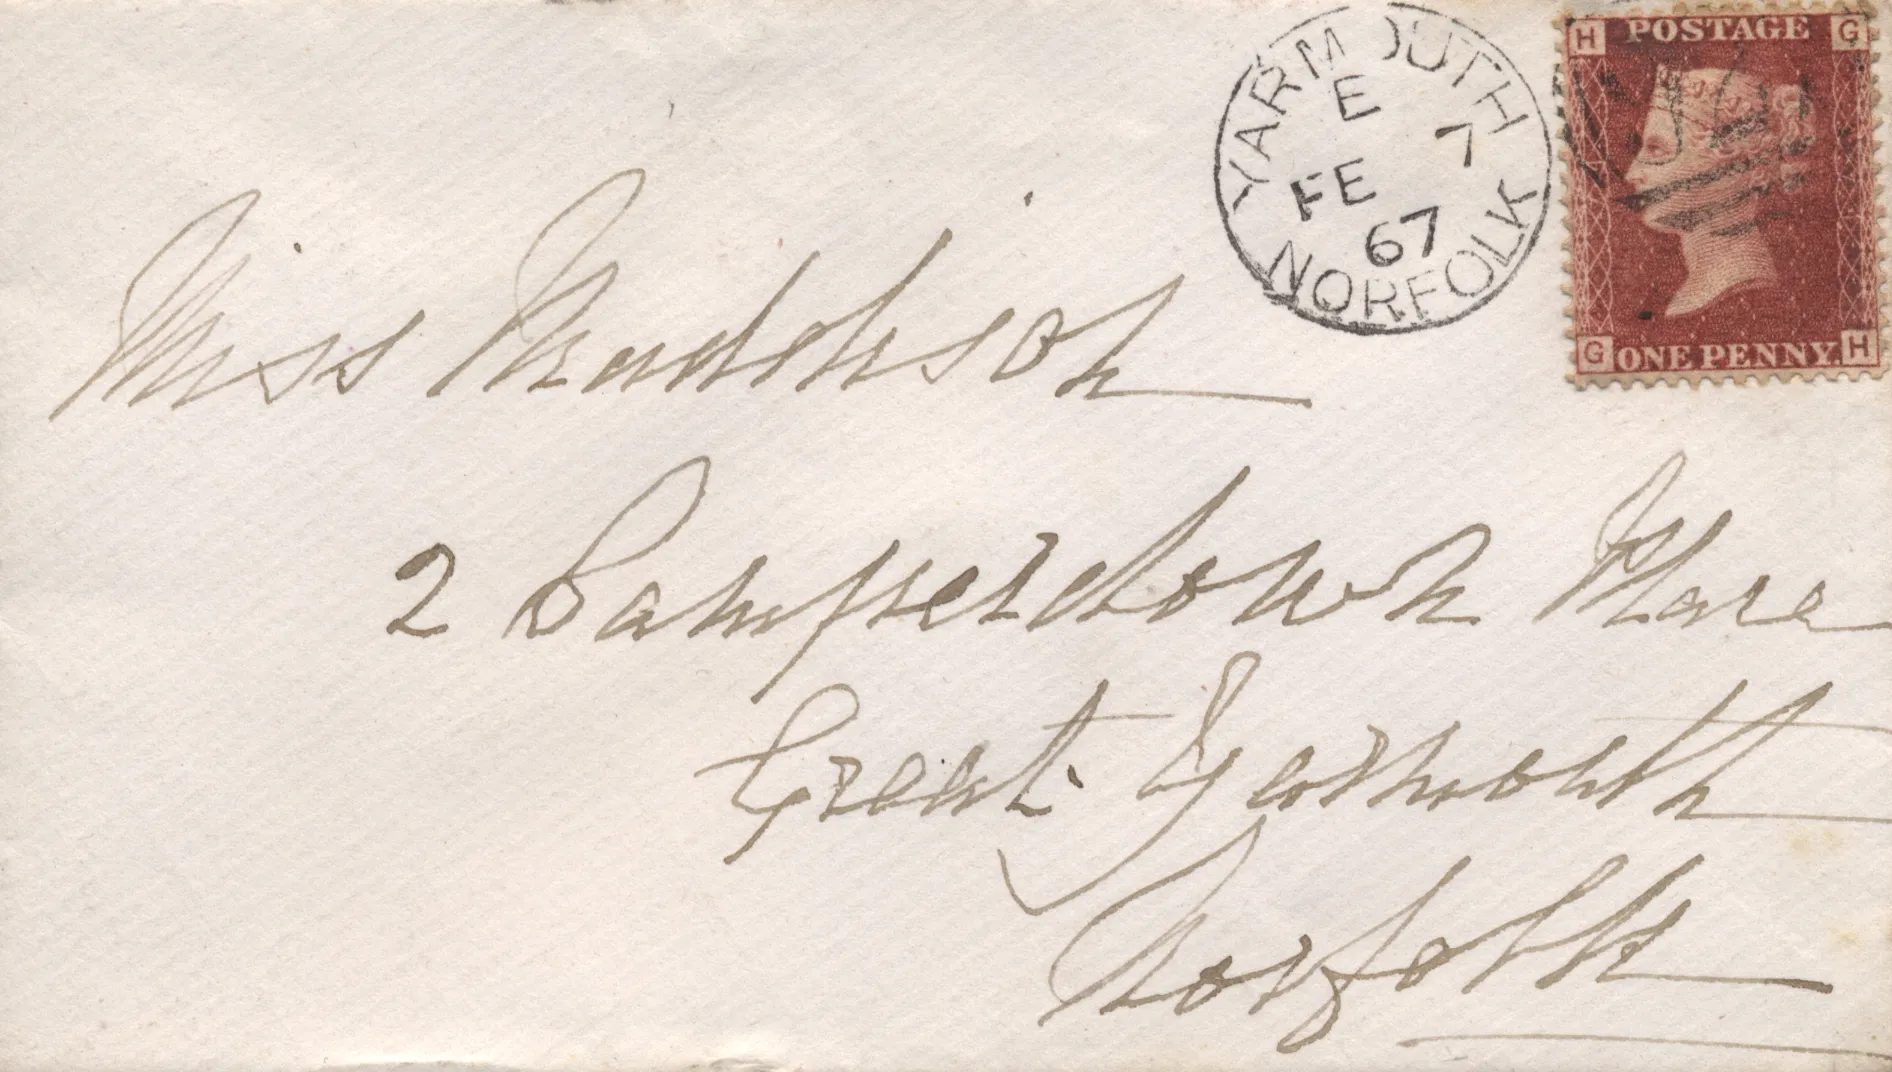 YARMOUTH
E
FE 7
67
NORFOLK
H POSTAGE G
G ONE PENNY. H
Miss Maddison
2 Camperdown Place
Great Yarmouth
Norfolk